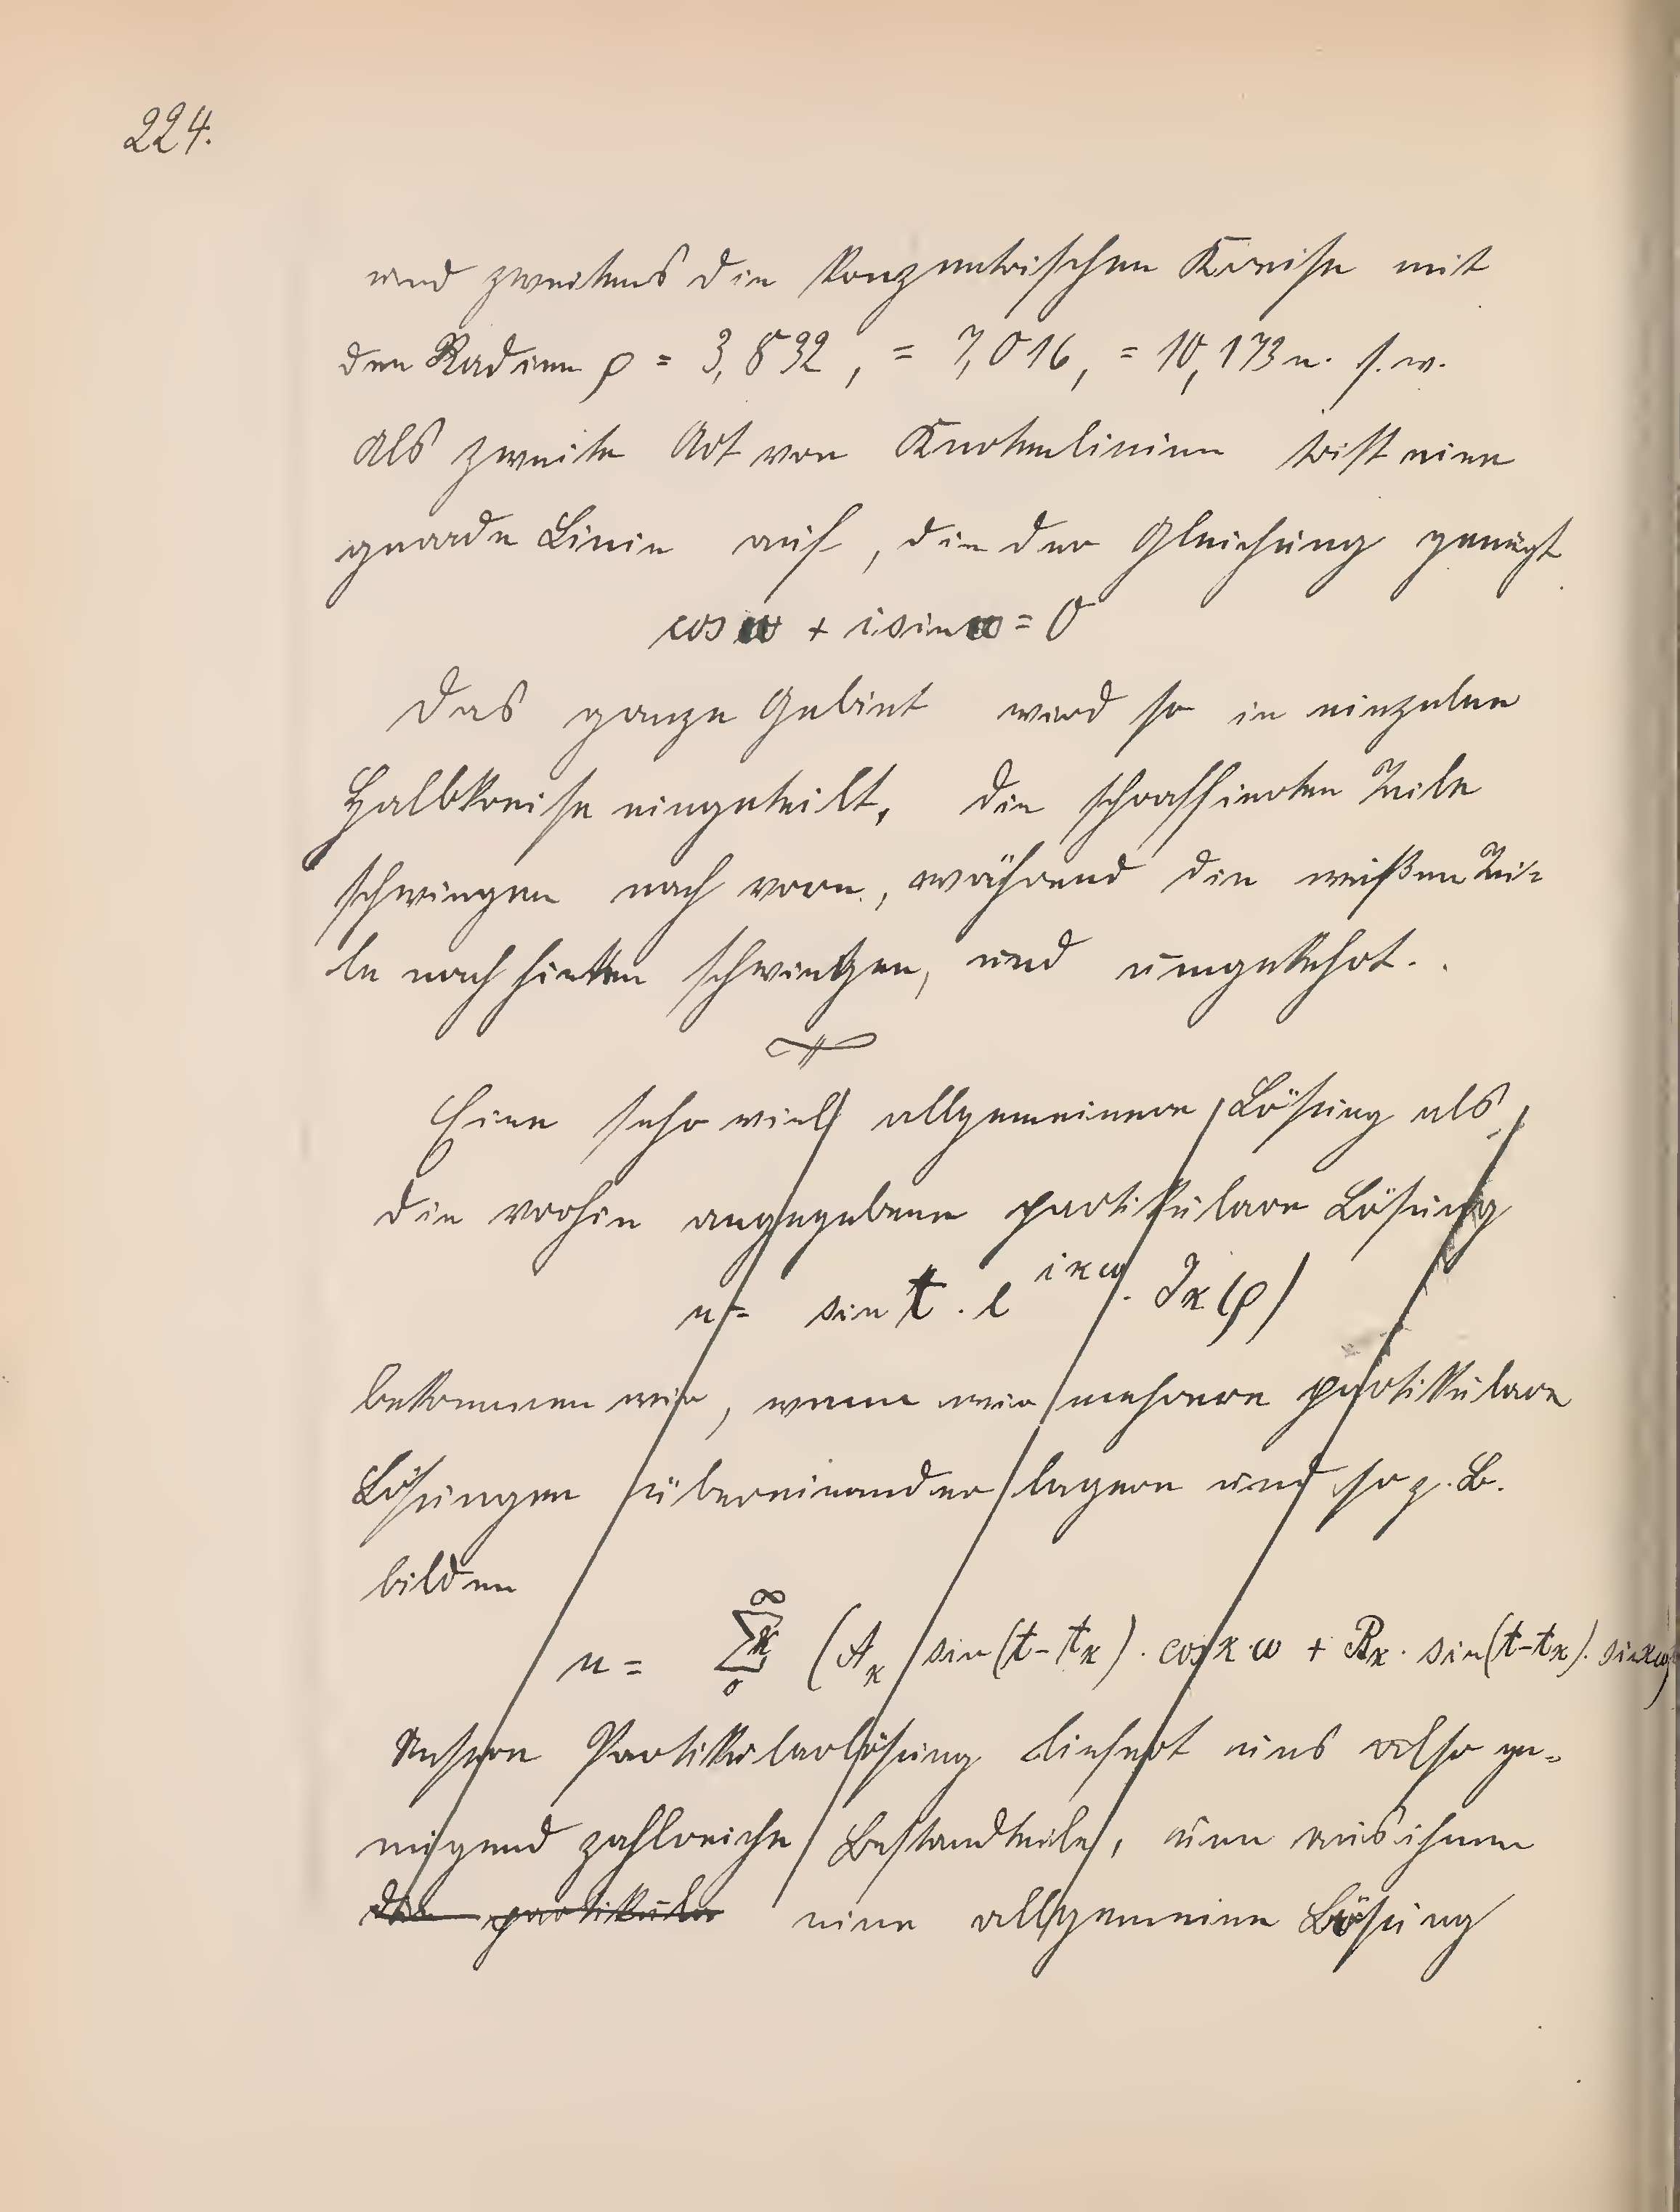 224.
und zweitens die konzentrischen Kreise mit
den Radien ρ = 3,832, = 7,016, = 10,173 u. s. w.
Als zweite Art von Knotenlinien tritt eine
gerade Linie auf, die der Gleichung genügt
cos ω + i sin ω = 0
Das ganze Gebiet wird so in einzelne
Halbkreise eingeteilt, die schraffierten Teile
schwingen nach vorn, während die weißen Tei-
le nach hinten schwingen, und umgekehrt.
Eine sehr viel allgemeinere Lösung als
die vorhin angegebene partikulare Lösung
u = sin t · e^{iκω} · J_κ(ρ)
bekommen wir, wenn wir mehrere partikulare
Lösungen übereinander lagern und so z. B.
bilden
u = Σ_0^∞ κ (A_κ sin(t-t_κ) · cos κ·ω + B_κ · sin(t-t_κ) · sin κω)
Unsere Partikularlösung liefert uns also ge-
nügend zahlreiche Bestandteile, um aus ihnen
die partikular eine allgemeine Lösung